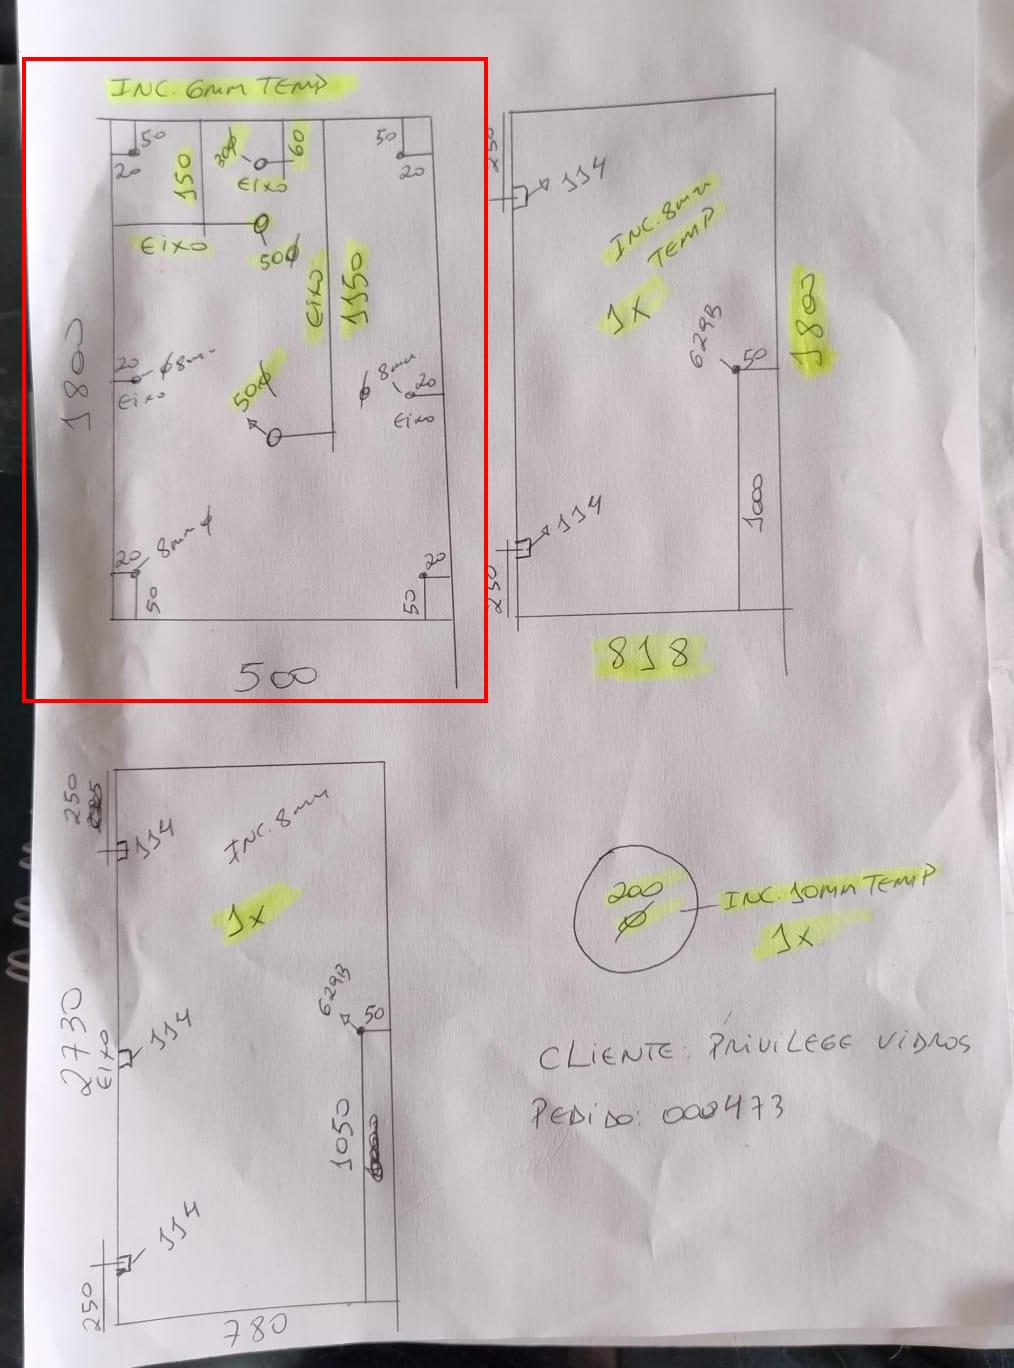 INC. 6MM TEMP
50
20
150
30φ
60
EIXO
50
20
EIXO
50φ
EIXO
1150
1800
20
φ8mm
EIXO
50φ
φ 8mm
20
EIXO
20
8mm φ
50
20
50
500
250
114
INC. 8mm
TEMP
1X
629B
50
1800
114
1000
250
818
250
114
INC. 8mm
1x
2730
EIXO
114
629B
50
1050
114
250
780
200
φ
INC. 10MM TEMP
1X
CLIENTE: PRIVILEGE VIDROS
PEDIDO: 000473